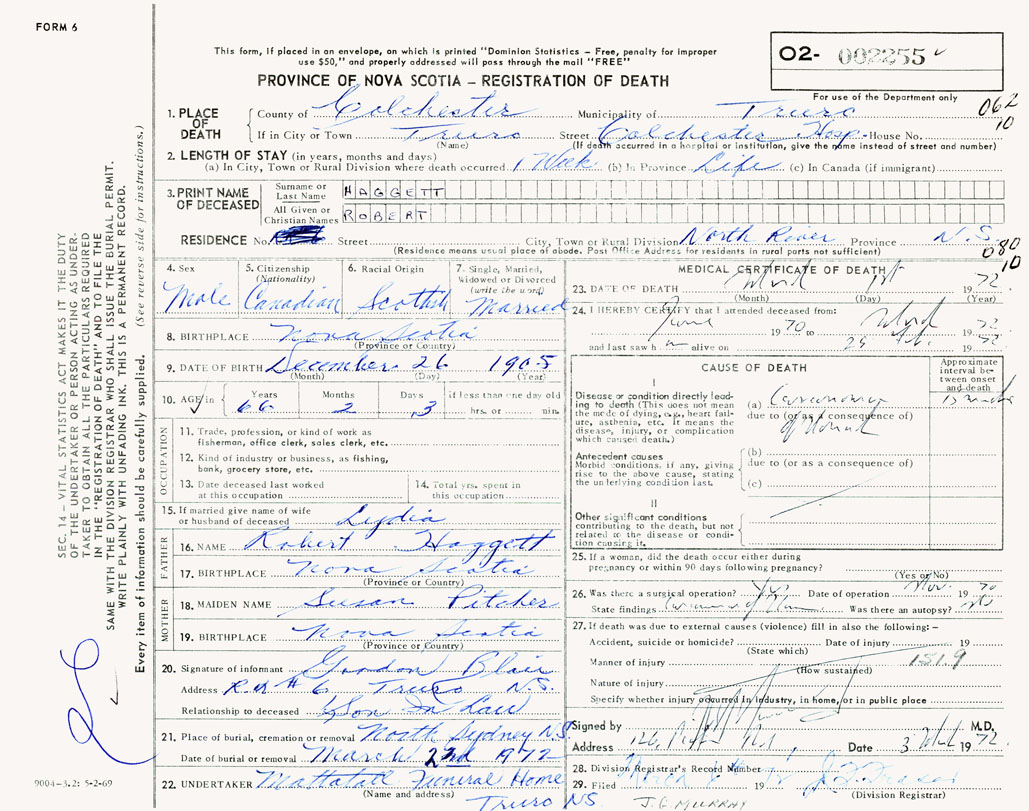 FORM 6
This form, if placed in an envelope, on which is printed "Dominion Statistics – Free, penalty for improper
use $50," and properly addressed will pass through the mail "FREE"
PROVINCE OF NOVA SCOTIA – REGISTRATION OF DEATH
02- 002255
For use of the Department only
062
10
1. PLACE OF DEATH
County of Colchester Municipality of Truro
If in City or Town Truro Street Colchester Hosp. House No.
(Name) (If death occurred in a hospital or institution, give the name instead of street and number)
2. LENGTH OF STAY (in years, months and days)
(a) In City, Town or Rural Division where death occurred 1 Week (b) In Province Life (c) In Canada (if immigrant)
3. PRINT NAME OF DECEASED
Surname or Last Name HAGGETT
All Given or Christian Names ROBERT
RESIDENCE No. Street City, Town or Rural Division North River Province N.S.
(Residence means usual place of abode. Post Office Address for residents in rural parts not sufficient)
080
10
4. Sex Male
5. Citizenship (Nationality) Canadian
6. Racial Origin Scottish
7. Single, Married, Widowed or Divorced (write the word) Married
8. BIRTHPLACE Nova Scotia
(Province or Country)
9. DATE OF BIRTH December 26 1905
(Month) (Day) (Year)
10. AGE in Years 66 Months 2 Days 3 if less than one day old hrs. or min.
OCCUPATION
11. Trade, profession, or kind of work as
fisherman, office clerk, sales clerk, etc.
12. Kind of industry or business, as fishing,
bank, grocery store, etc.
13. Date deceased last worked
at this occupation
14. Total yrs. spent in
this occupation
15. If married give name of wife
or husband of deceased Lydia
FATHER
16. NAME Robert Haggett
17. BIRTHPLACE Nova Scotia
(Province or Country)
MOTHER
18. MAIDEN NAME Susan Pitcher
19. BIRTHPLACE Nova Scotia
(Province or Country)
20. Signature of informant Gordon Blair
Address R.R # 6 Truro N.S.
Relationship to deceased Son In Law
21. Place of burial, cremation or removal North Sydney N.S.
Date of burial or removal March 2nd 1972
22. UNDERTAKER Mattatall Funeral Home
(Name and address)
Truro N.S.
MEDICAL CERTIFICATE OF DEATH
23. DATE OF DEATH March 1st 1972
(Month) (Day) (Year)
24. I HEREBY CERTIFY that I attended deceased from:
June 1970 to March 1972
and last saw h m alive on 29 Feb. 1972
CAUSE OF DEATH
Approximate interval between onset and death
I
Disease or condition directly leading
to death (This does not mean
the mode of dying, e.g., heart failure,
asthenia, etc. It means the
disease, injury, or complication
which caused death.)
(a) Carcinoma
due to (or as a consequence of)
of Stomach
Antecedent causes
Morbid conditions, if any, giving
rise to the above cause, stating
the underlying condition last.
(b)
due to (or as a consequence of)
(c)
II
Other significant conditions
contributing to the death, but not
related to the disease or condition
causing it.
25. If a woman, did the death occur either during
pregnancy or within 90 days following pregnancy?
(Yes or No)
26. Was there a surgical operation? Yes Date of operation Nov. 1970
State findings Carcinoma of Was there an autopsy? No
27. If death was due to external causes (violence) fill in also the following: –
Accident, suicide or homicide? Date of injury 19
(State which)
Manner of injury 151.9
(How sustained)
Nature of injury
Specify whether injury occurred in industry, in home, or in public place
Signed by M.D.
Address Date 3 Mch 1972
28. Division Registrar's Record Number
29. Filed
(Division Registrar)
J.E. MURRAY
SEC. 14 – VITAL STATISTICS ACT MAKES IT THE DUTY
OF THE UNDERTAKER OR PERSON ACTING AS UNDERTAKER
TO OBTAIN ALL THE PARTICULARS REQUIRED
IN THE "REGISTRATION OF DEATH" AND FILE THE
SAME WITH THE DIVISION REGISTRAR WHO SHALL ISSUE THE BURIAL PERMIT.
WRITE PLAINLY WITH UNFADING INK. THIS IS A PERMANENT RECORD.
Every item of information should be carefully supplied. (See reverse side for instructions.)
9004-3.2: 5-2-69